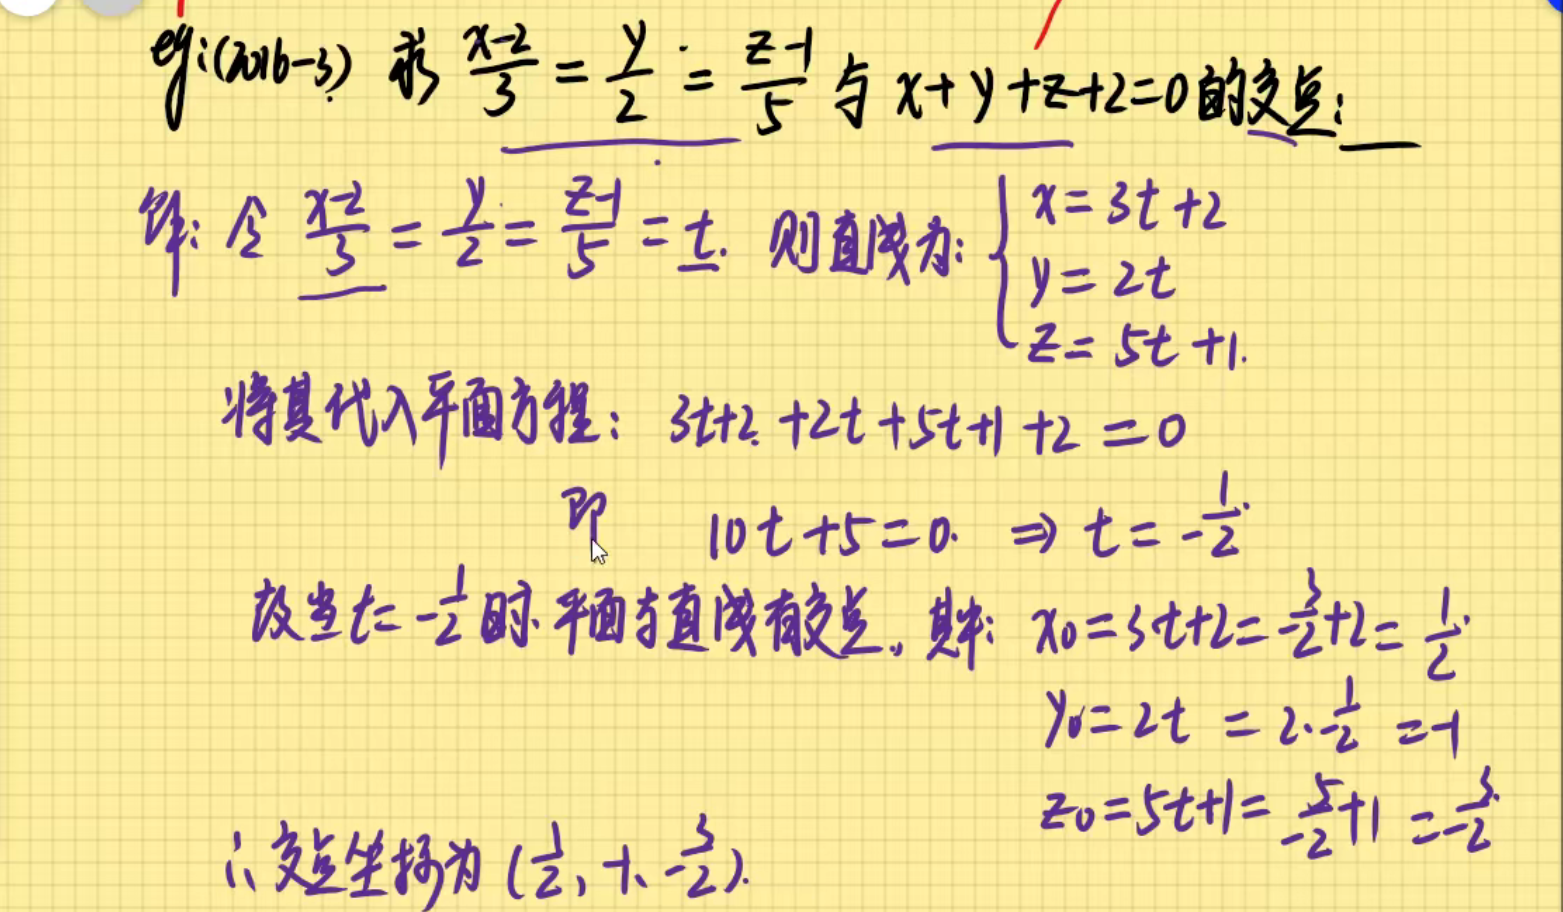 eg:(2016-3) 求 (x-2)/3 = y/2 = (z-1)/5 与 x+y+z+2=0 的交点:
解: 令 (x-2)/3 = y/2 = (z-1)/5 = t. 则直线为: { x=3t+2
y=2t
z=5t+1.
将其代入平面方程: 3t+2+2t+5t+1+2=0
即 10t+5=0. ⇒ t=-1/2.
故当t=-1/2时. 平面与直线有交点, 其中: x₀=3t+2=-3/2+2=1/2.
y₀=2t=2·-1/2=-1
z₀=5t+1=-5/2+1=-3/2.
∴交点坐标为 (1/2, -1, -3/2).